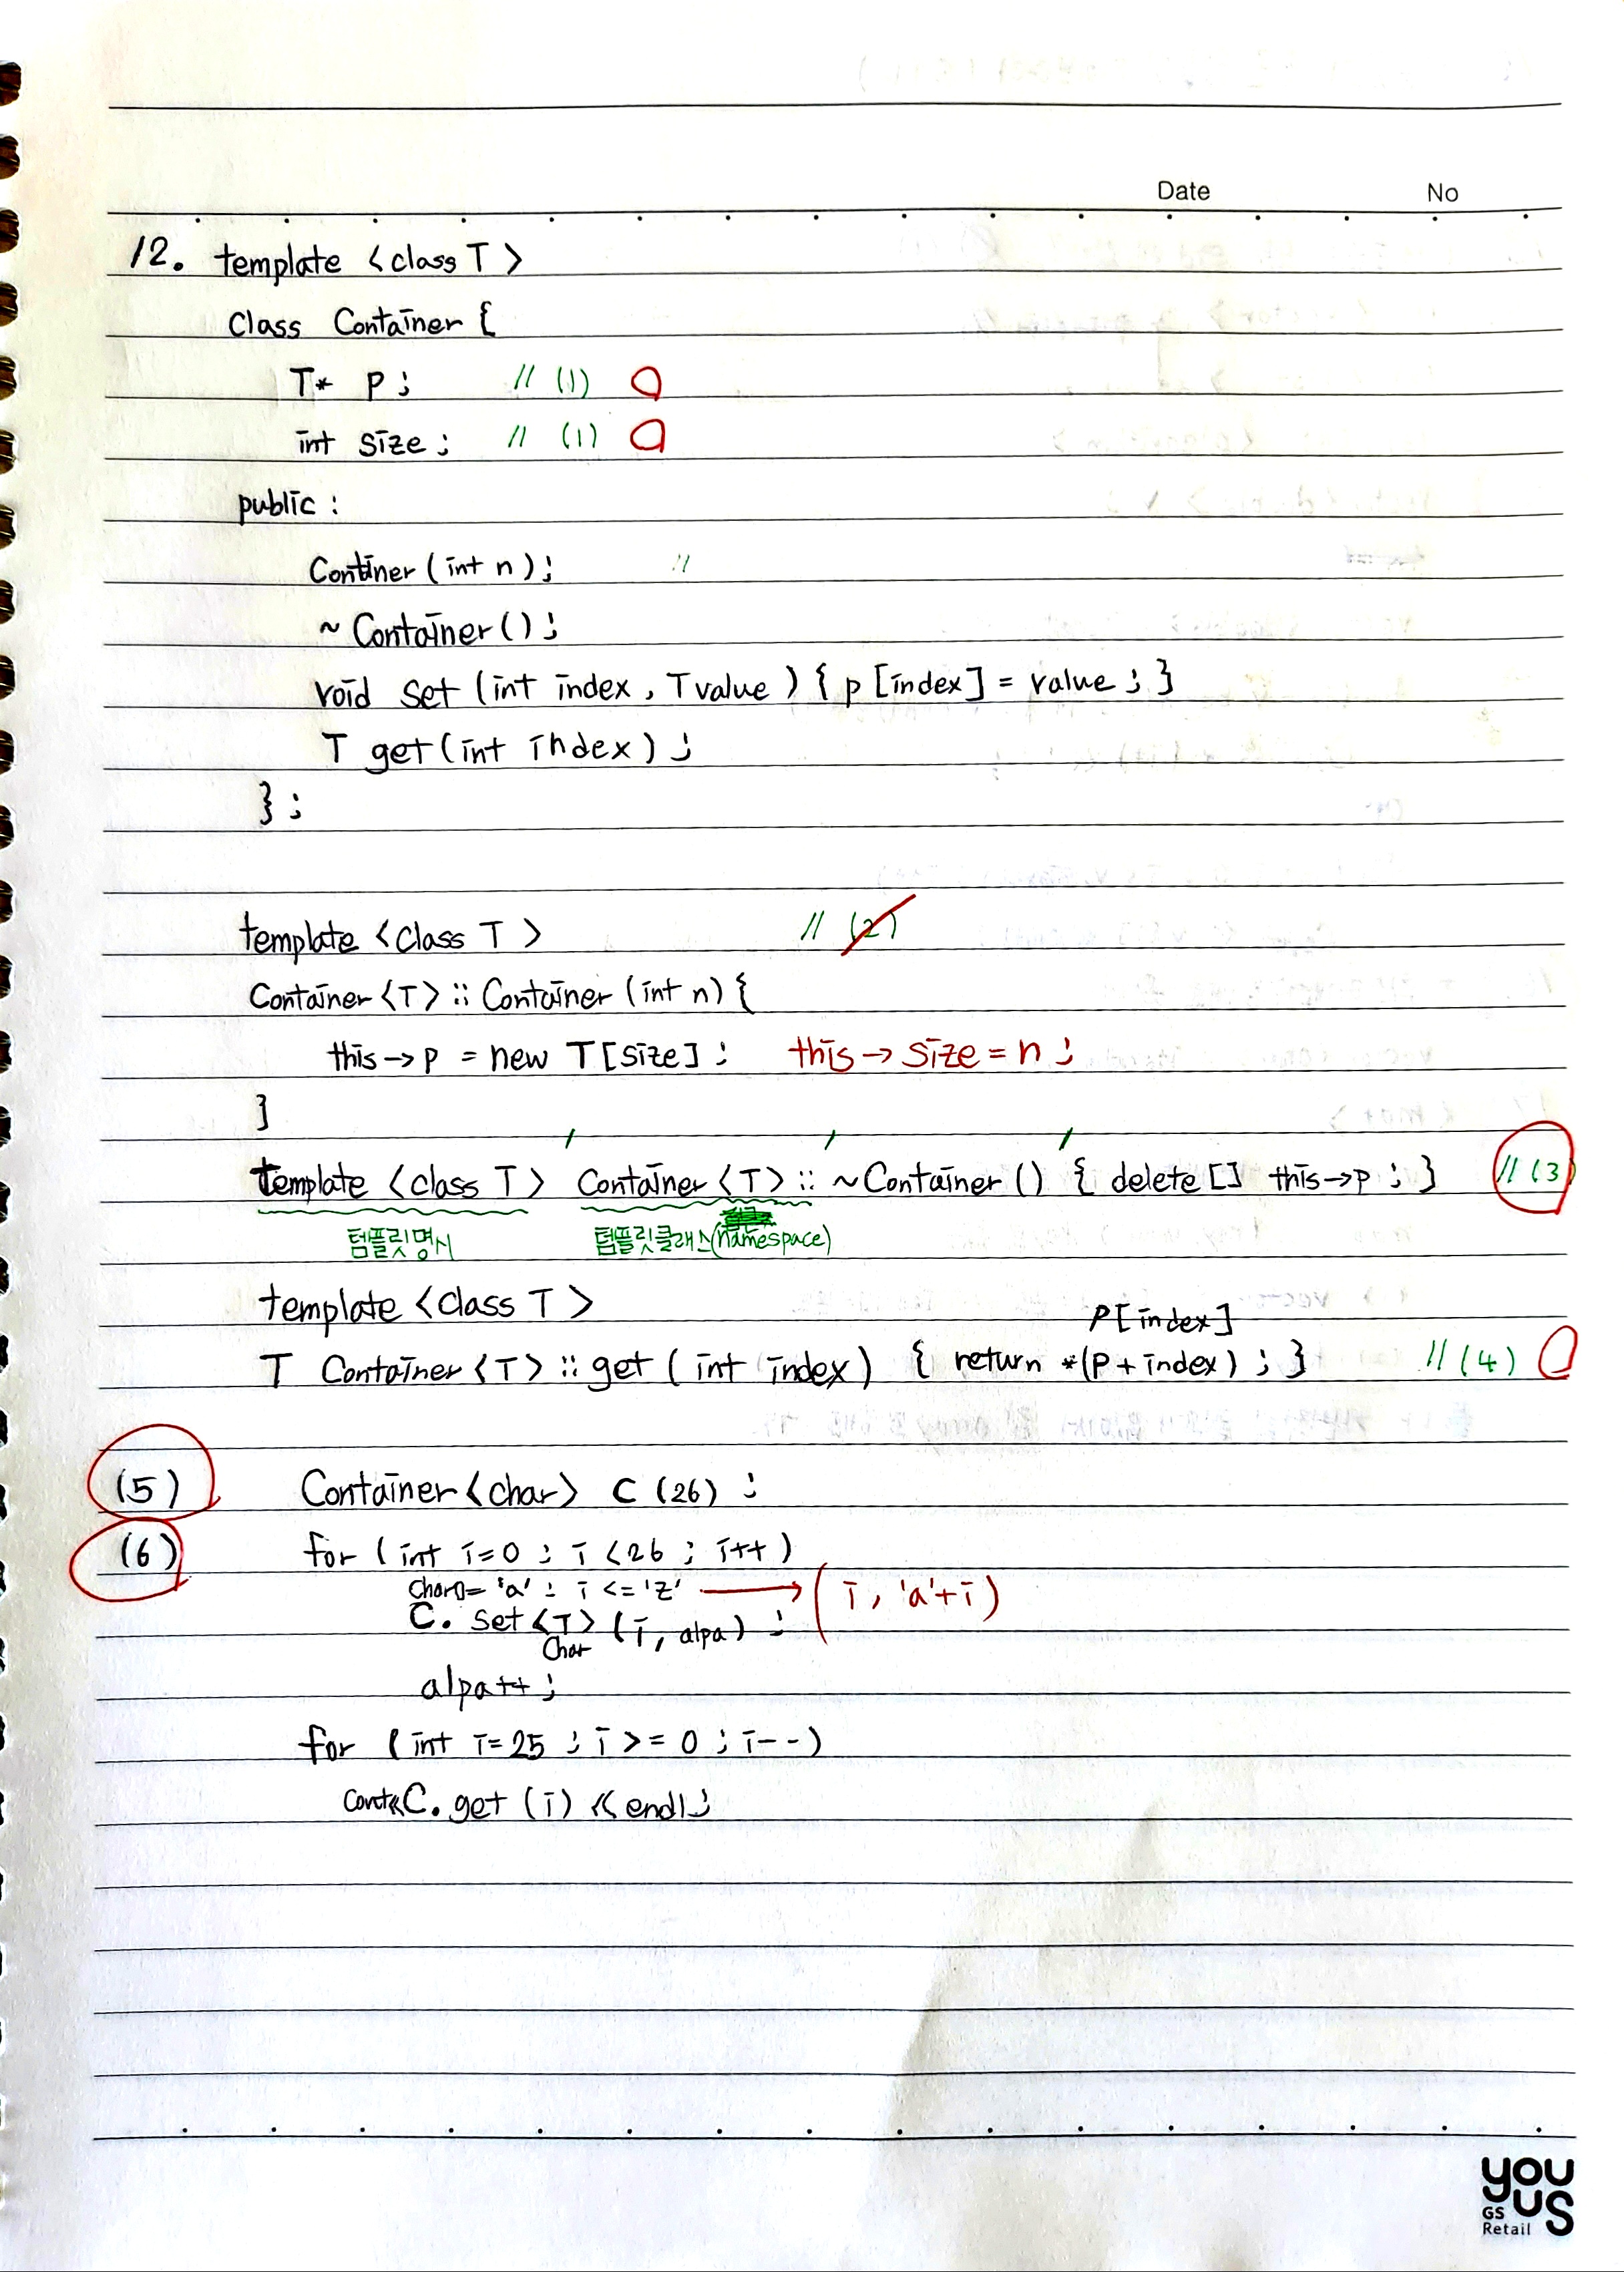 Date No
12. template <class T>
class Container {
T* P; // (1)
int size; // (1)
public:
Continer (int n); //
~ Container();
void set (int index, T value) { p [index] = value; }
T get (int index);
};
template <class T> // (2)
Container <T> :: Container (int n) {
this→p = new T[size]; this→size = n;
}
template <class T> Container <T> :: ~Container () { delete [] this→p; } // (3)
템플릿명시 템플릿클래스(namespace)
template <class T>
P[index]
T Container <T> :: get (int index) { return *(p + index); } // (4)
(5) Container <char> C (26);
(6) for (int i=0; i <26; i++)
= 'a'; i <= 'z' → (i, 'a'+i)
C. set <T> (i, alpa);
Char
alpa++;
for (int i=25; i >= 0; i--)
C. get (i) << endl;
YOU US
GS Retail